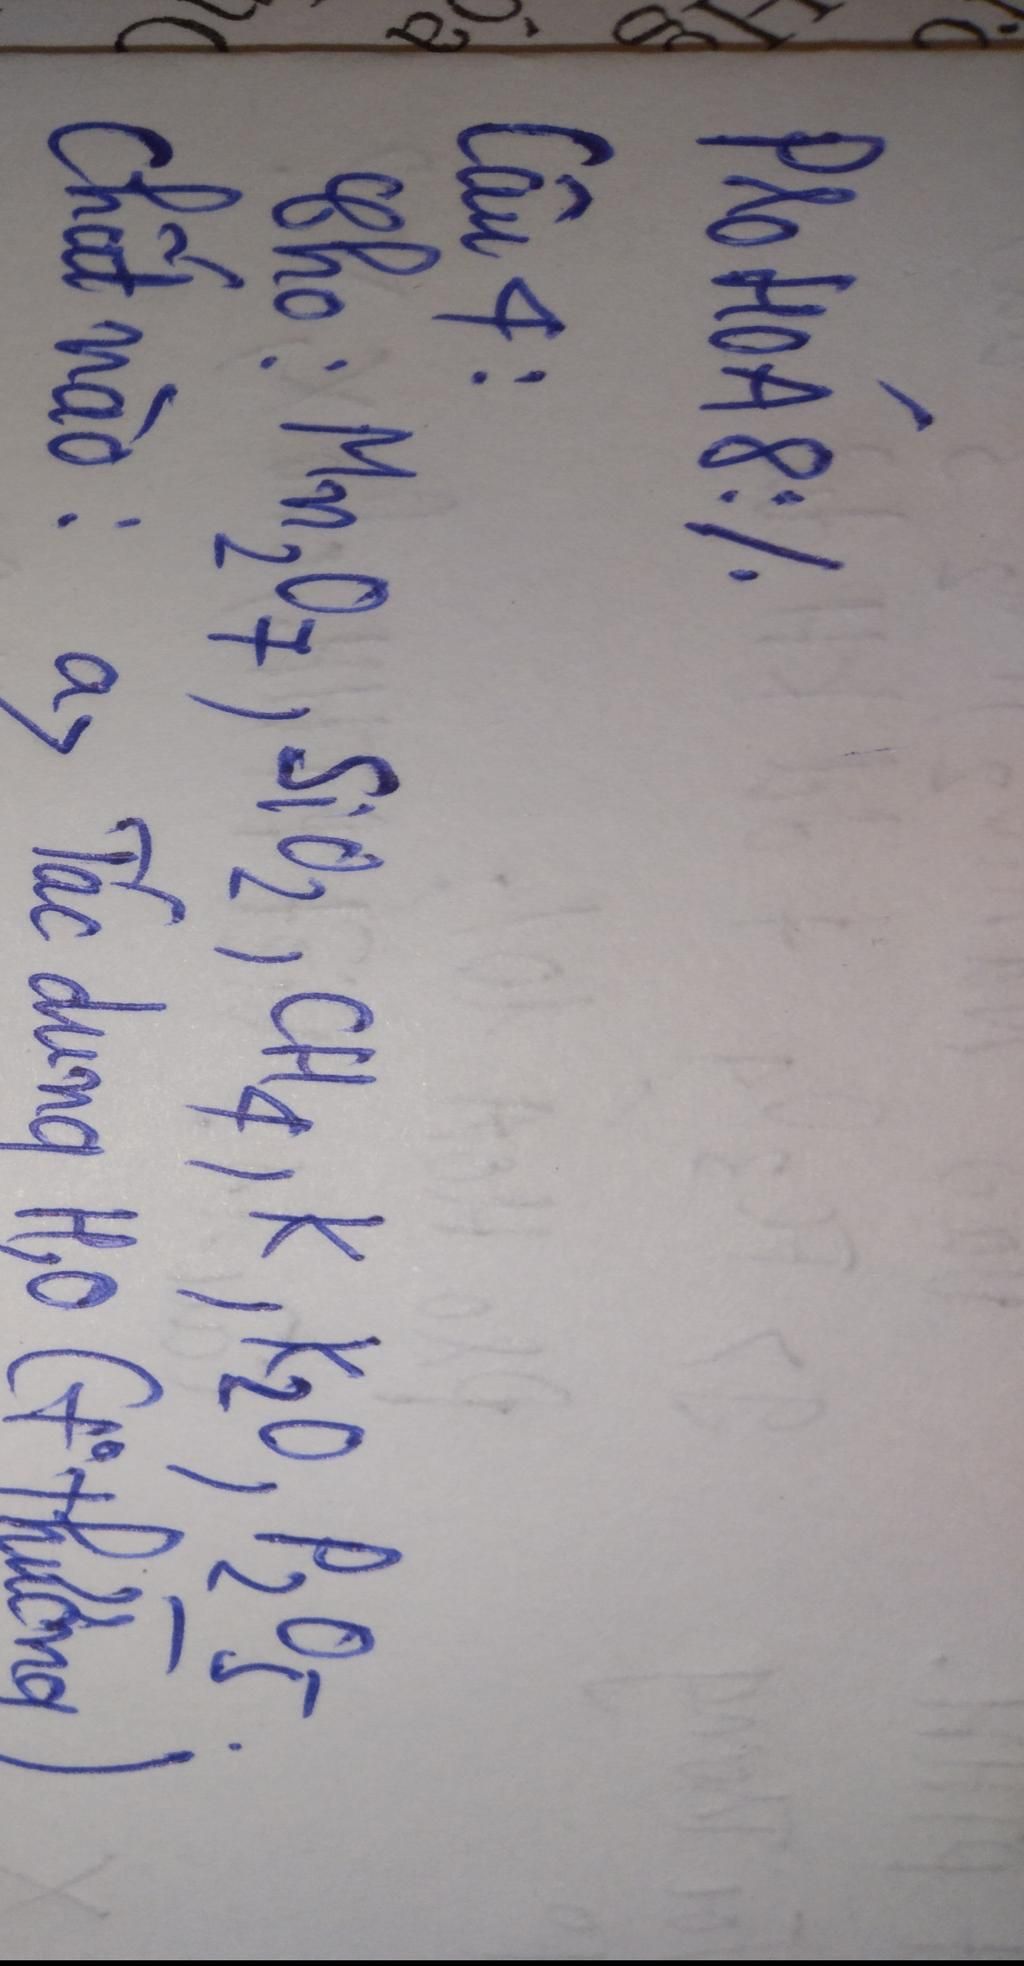 Pho HOÁ 8:/.
Câu 4:
Cho: Mn2O7, SiO2, CH4, K, K2O, P2O5.
Chất nào: a, Tác dung H2O (t° thường)